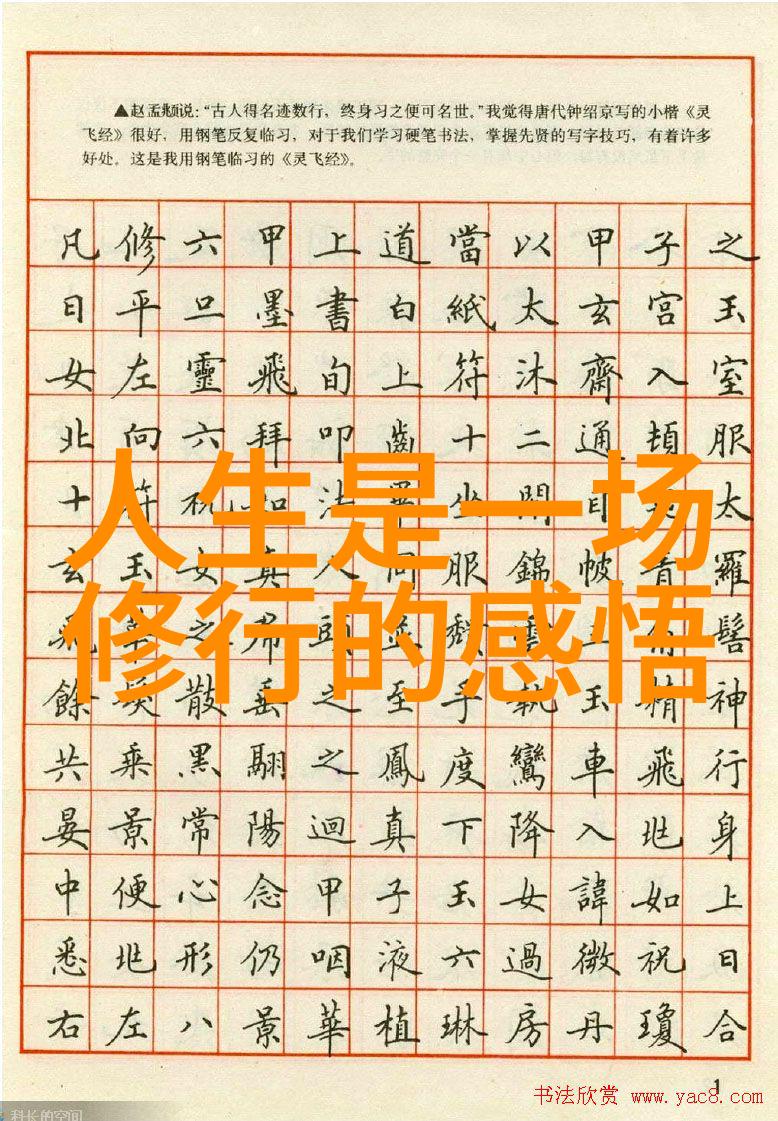 ▲赵孟頫说：“古人得名迹数行，终身习之便可名世。”我觉得唐代钟绍京写的小楷《灵
飞经》很好，用钢笔反复临习，对于我们学习硬笔书法，掌握先贤的写字技巧，有着许多
好处。这是我用钢笔临习的《灵飞经》。
凡修六甲上道當以甲子之
日平旦墨書白紙太玄宮玉
女左靈飛旬上符沐齋入室
北向六拜叩齒十二通頓服
十符祝如法畢坐閉目思太
人生是一场
玄玉女真人同服錦帔青羅
之頭雲髻
修行的感悟
餘髮散垂之至手執玉精神
共乘黑翮之鳳度鸞車飛行
晏景常陽迴真下降入兆身
中便心念甲子玉女諱如上
悉兆形仍咽液六過微祝日
右左八景華植琳房丹瓊合
1
书法欣赏 www.yac8.com
科长的空间